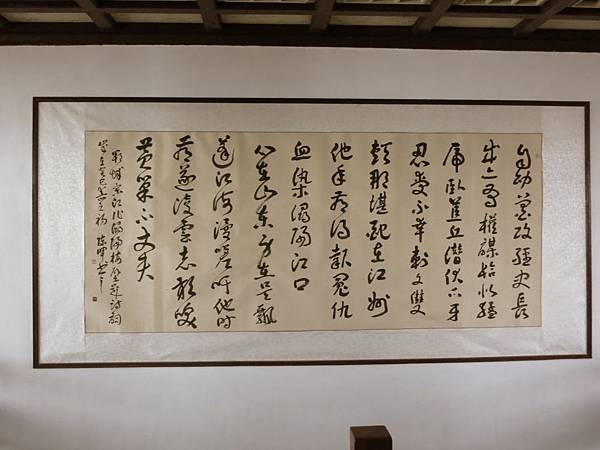 自幼曾攻經史長
成亦有權謀恰似猛
虎臥荒丘潛伏爪牙
忍受不幸刺文雙
頰那堪配在江州
他年若得報冤仇
血染潯陽江口
心在山東身在吳飄
蓬江海漫嗟吁他時
若遂凌雲志敢笑
黃巢不丈夫
宋江作潯陽樓